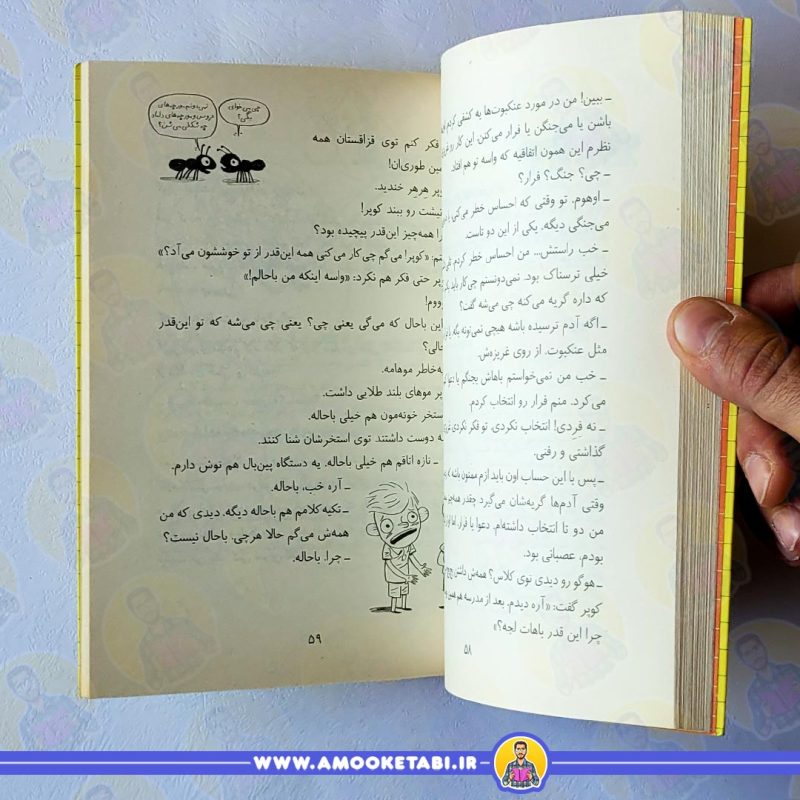 ـ ببین! من در مورد عنکبوت‌ها یه کشفی کردم.
باشن یا می‌جنگن یا فرار می‌کنن. این کار رو
نظرم این همون اتفاقیه که واسه تو هم افتاد.
ـ چی؟ جنگ؟ فرار؟
ـ اوهوم. تو وقتی که احساس خطر می‌کنی یا
می‌جنگی دیگه. یکی از این دو تاست.
ـ خب راستش... من احساس خطر کردم.
خیلی ترسناک بود. نمی‌دونستم چی‌کار باید
که داره گریه می‌کنه چی می‌شه گفت؟
ـ اگه آدم ترسیده باشه هیچی نمی‌تونه بگه.
مثل عنکبوت. از روی غریزه‌ش.
ـ خب من نمی‌خواستم باهاش بجنگم یا
می‌کرد. منم فرار رو انتخاب کردم.
ـ نه فردی! انتخاب نکردی. تو فکر نکردی
گذاشتی و رفتی.
ـ پس با این حساب اون باید ازم ممنون باشه
وقتی آدم‌ها گریه‌شان می‌گیرد چقدر همه‌چیز
من دو تا انتخاب داشته‌ام. دعوا یا فرار. اما
بودم. عصبانی بود.
ـ هوگو رو دیدی توی کلاس؟ همه‌ش داشتن
کوپر گفت: «آره دیدم. بعد از مدرسه هم
چرا این قدر باهات لجه؟»
۵۸
نمی‌دونم مورچه‌های
عروس و مورچه‌های داماد
چه شکلی می‌شن؟
چی می‌خوای
بگی؟
فکر کنم توی قزاقستان همه
طوری‌ان!
هرهر خندید.
رو ببند کوپر!
همه‌چیز این‌قدر پیچیده بود؟
«کوپر! می‌گم چی‌کار می‌کنی همه این‌قدر از تو خوششون می‌آد؟»
حتی فکر هم نکرد: «واسه اینکه من باحالم!»
این باحال که می‌گی یعنی چی؟ یعنی چی می‌شه که تو این‌قدر
موهامه.
موهای بلند طلایی داشت.
خونه‌مون هم خیلی باحاله.
دوست داشتند توی استخرشان شنا کنند.
ـ تازه اتاقم هم خیلی باحاله. یه دستگاه پین‌بال هم توش دارم.
ـ آره خب، باحاله.
ـ تکیه‌کلامم هم باحاله دیگه. دیدی که من
همه‌ش می‌گم حالا هرچی. باحال نیست؟
ـ چرا. باحاله.
۵۹
WWW.AMOOKETABI.IR